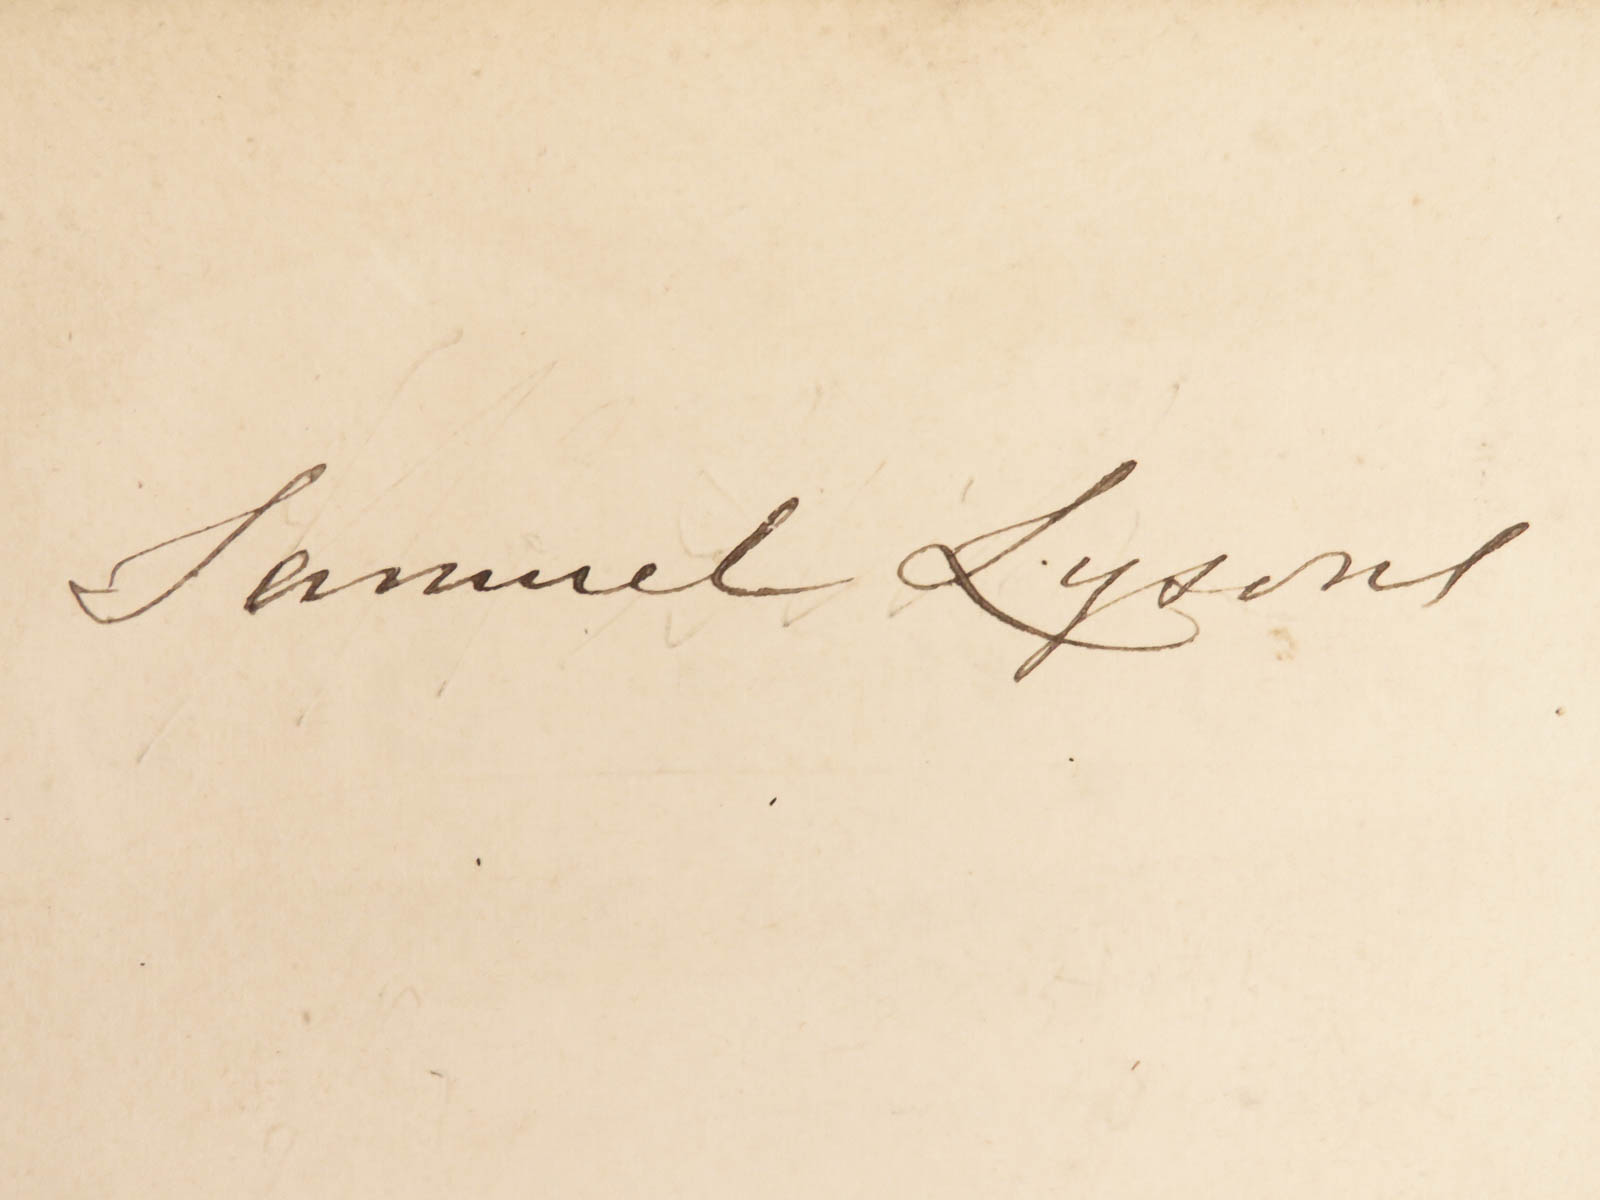 Samuel Lysons